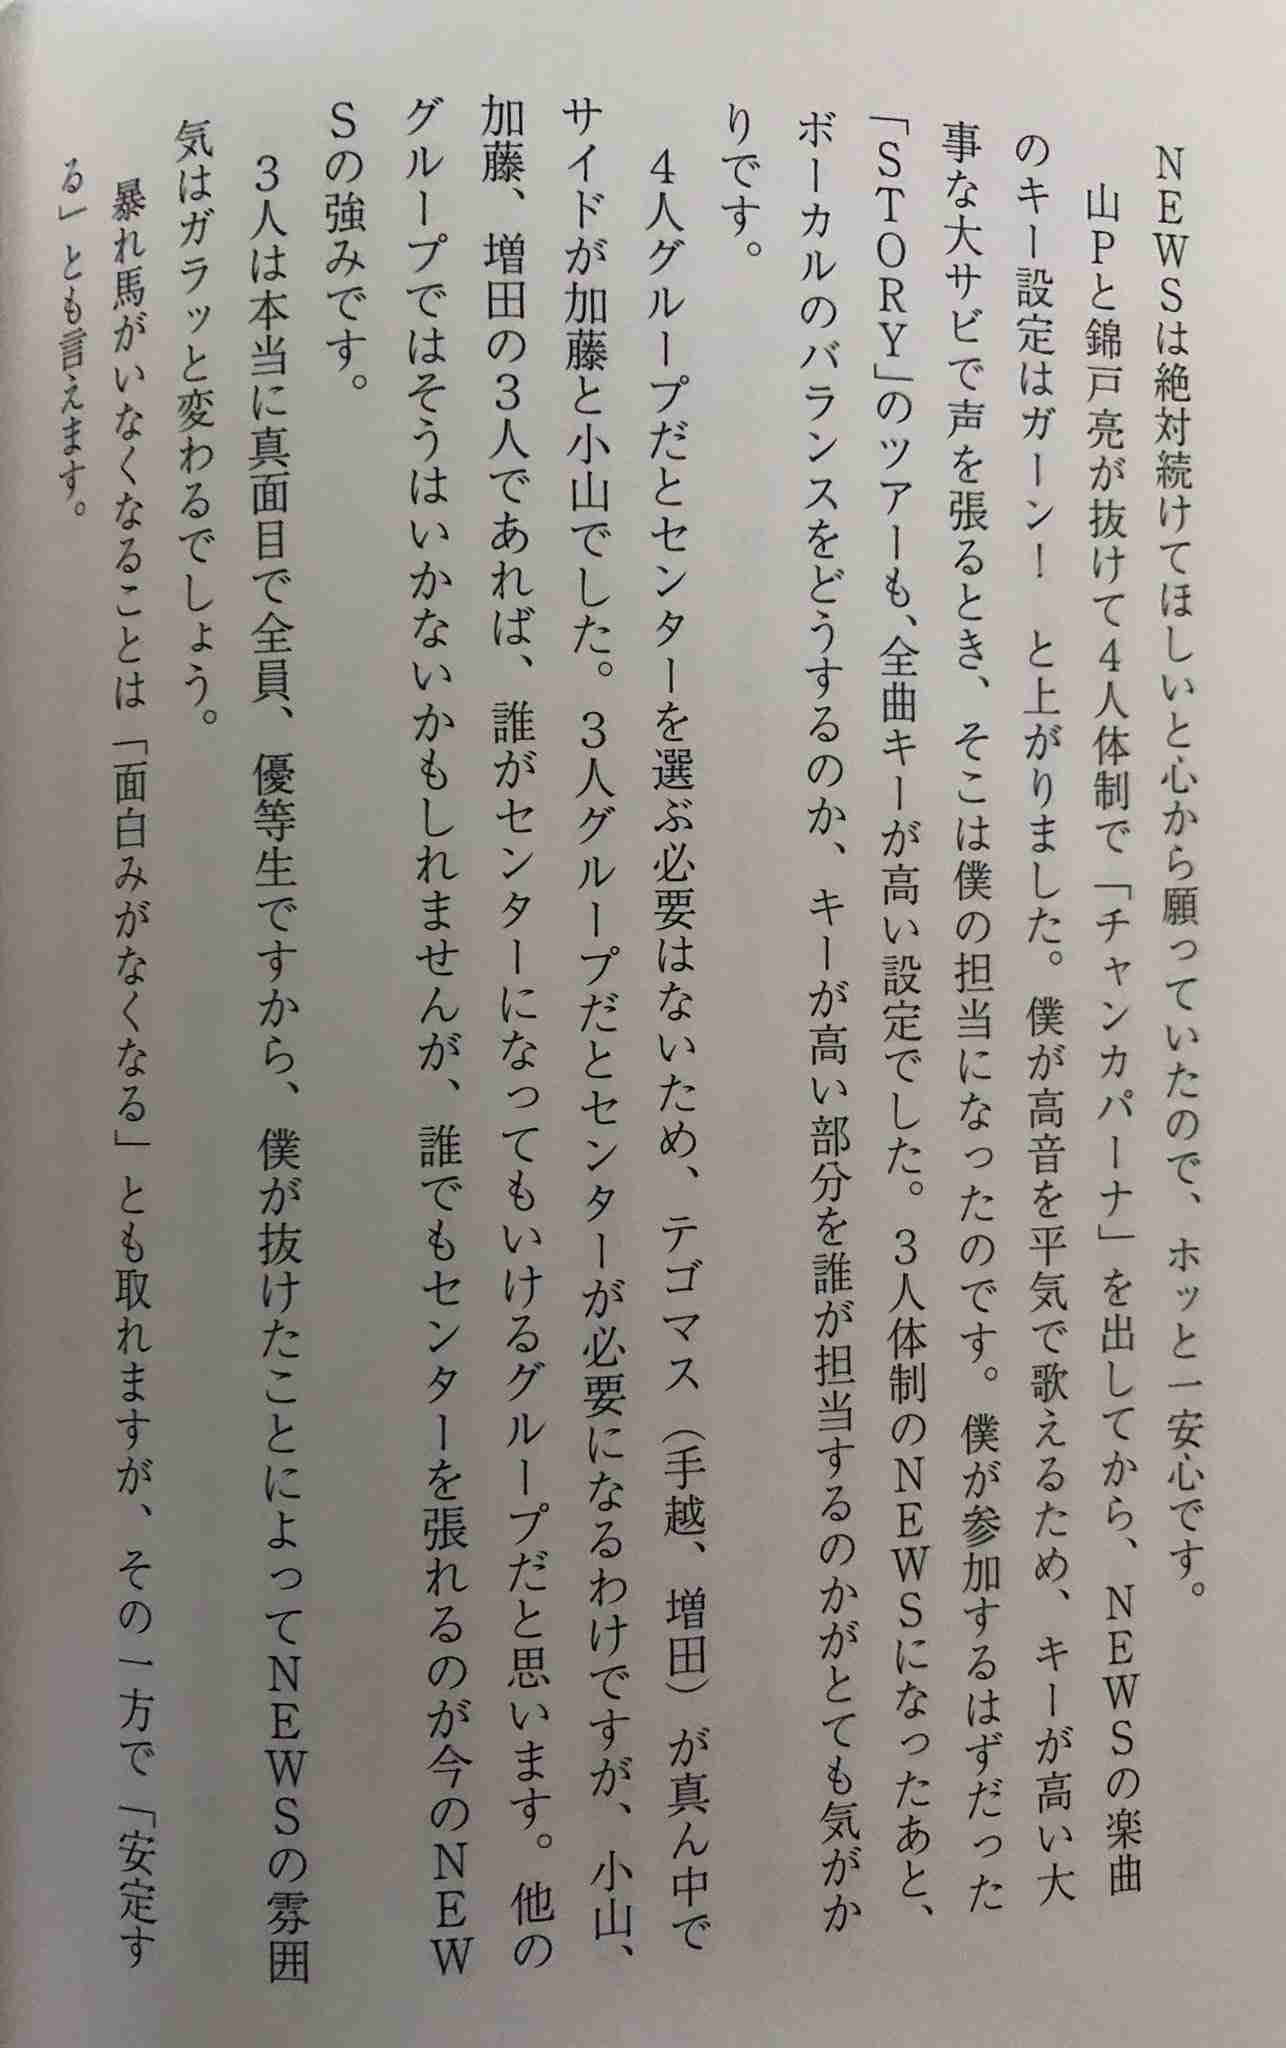 NEWSは絶対続けてほしいと心から願っていたので、ホッと一安心です。
山Pと錦戸亮が抜けて4人体制で「チャンカパーナ」を出してから、NEWSの楽曲
のキー設定はガーン！　と上がりました。僕が高音を平気で歌えるため、キーが高い大
事な大サビで声を張るとき、そこは僕の担当になったのです。僕が参加するはずだった
「STORY」のツアーも、全曲キーが高い設定でした。3人体制のNEWSになったあと、
ボーカルのバランスをどうするのか、キーが高い部分を誰が担当するのかがとても気がか
りです。
4人グループだとセンターを選ぶ必要はないため、テゴマス（手越、増田）が真ん中で
サイドが加藤と小山でした。3人グループだとセンターが必要になるわけですが、小山、
加藤、増田の3人であれば、誰がセンターになってもいけるグループだと思います。他の
グループではそうはいかないかもしれませんが、誰でもセンターを張れるのが今のNEW
Sの強みです。
3人は本当に真面目で全員、優等生ですから、僕が抜けたことによってNEWSの雰囲
気はガラッと変わるでしょう。
暴れ馬がいなくなることは「面白みがなくなる」とも取れますが、その一方で「安定す
る」とも言えます。